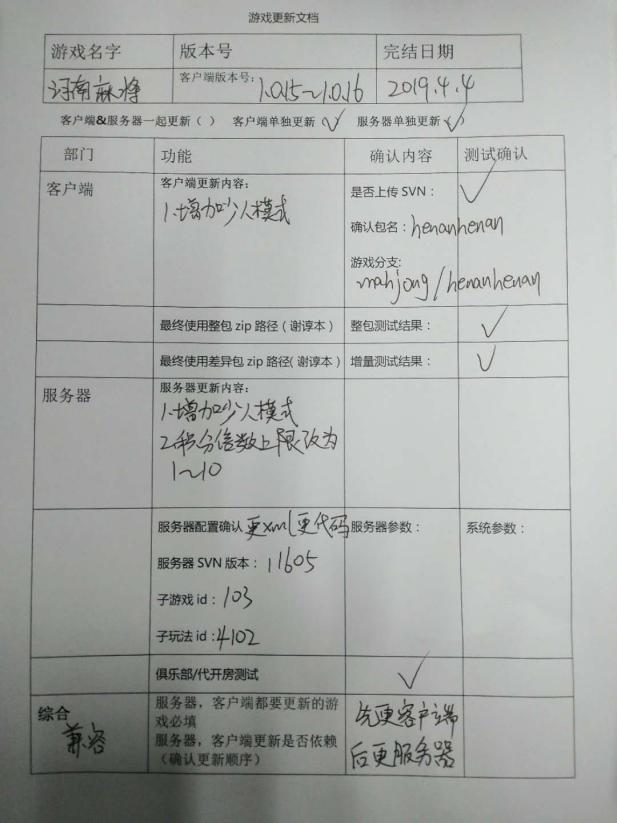 游戏更新文档
游戏名字 版本号 完结日期
河南麻将 客户端版本号: 1.0.15~1.0.16 2019.4.4
客户端&服务器一起更新（ ） 客户端单独更新 ✓ 服务器单独更新（✓）
部门 功能 确认内容 测试确认
客户端 客户端更新内容: 是否上传 SVN： ✓
1.增加少人模式 确认包名：henanhenan
游戏分支:
mahjong/henanhenan
最终使用整包 zip 路径（谢谆本） 整包测试结果： ✓
最终使用差异包 zip 路径（谢谆本） 增量测试结果： ✓
服务器 服务器更新内容:
1.增加少人模式
2.积分倍数上限改为
1~10
服务器配置确认 更xml 更代码 服务器参数： 系统参数：
服务器 SVN 版本： 11605
子游戏 id：103
子玩法 id：4102
俱乐部/代开房测试 ✓
综合 服务器，客户端都要更新的游 先更客户端
兼容 戏必填
服务器，客户端更新是否依赖 后更服务器
（确认更新顺序）